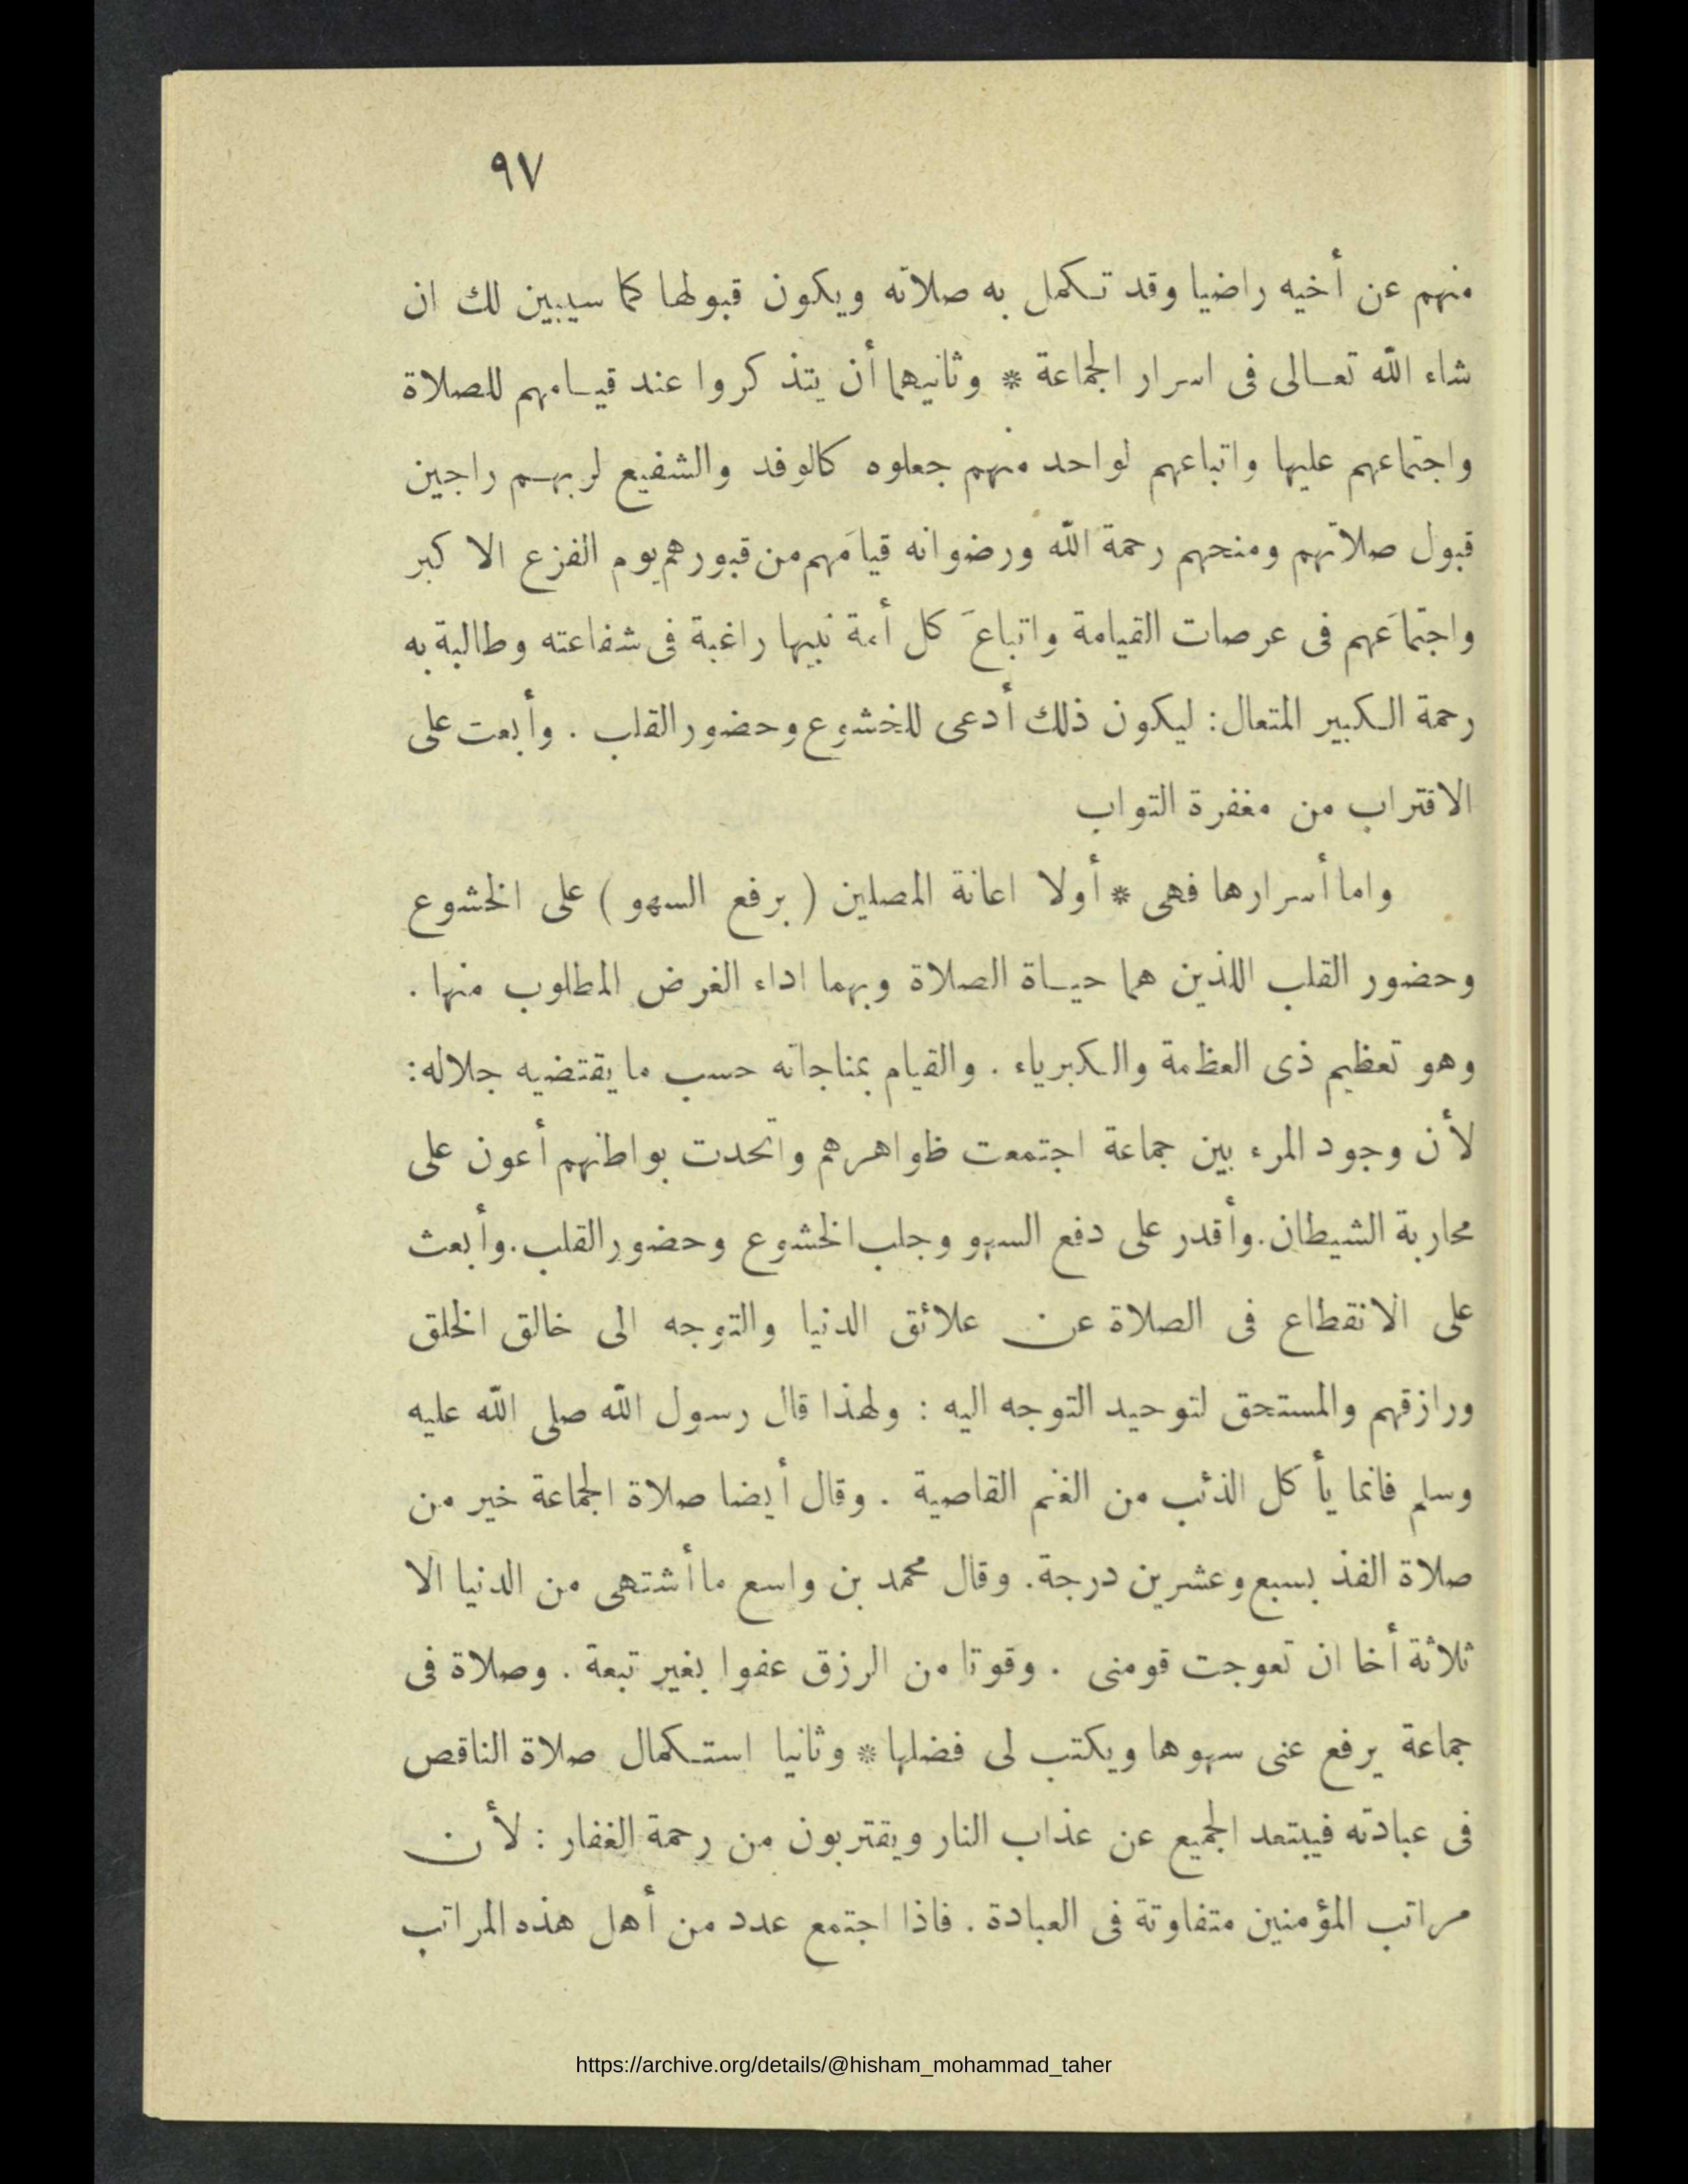 ٩٧
منهم عن أخيه راضيا وقد تكمل به صلاته ويكون قبولها كما سيبين لك ان
شاء الله تعالى فى اسرار الجماعة * وثانيهما أن يتذكروا عند قيامهم للصلاة
واجتماعهم عليها واتباعهم لواحد منهم جعلوه كالوفد والشفيع لربهم راجين
قبول صلاتهم ومنحهم رحمة الله ورضوانه قيامَهم من قبورهم يوم الفزع الاكبر
واجتماعَهم فى عرصات القيامة واتباعَ كل أمة نبيها راغبة فى شفاعته وطالبة به
رحمة الكبير المتعال: ليكون ذلك أدعى للخشوع وحضور القلب . وأبعت على
الاقتراب من مغفرة التواب
واما أسرارها فهى * أولا اعانة المصلين ( برفع السهو ) على الخشوع
وحضور القلب اللذين هما حياة الصلاة وبهما اداء الغرض المطلوب منها .
وهو تعظيم ذى العظمة والكبرياء . والقيام بمناجاته حسب ما يقتضيه جلاله:
لأن وجود المرء بين جماعة اجتمعت ظواهرهم واتحدت بواطنهم أعون على
محاربة الشيطان. وأقدر على دفع السهو وجلب الخشوع وحضور القلب. وأبعث
على الانقطاع فى الصلاة عن علائق الدنيا والتوجه الى خالق الخلق
ورازقهم والمستحق لتوحيد التوجه اليه : ولهذا قال رسول الله صلى الله عليه
وسلم فانما يأكل الذئب من الغنم القاصية . وقال أيضا صلاة الجماعة خير من
صلاة الفذ بسبع وعشرين درجة. وقال محمد بن واسع ما أشتهى من الدنيا الا
ثلاثة أخا ان تعوجت قومنى . وقوتا من الرزق عفوا بغير تبعة . وصلاة فى
جماعة يرفع عنى سهوها ويكتب لى فضلها * وثانيا استكمال صلاة الناقص
فى عبادته فيبتعد الجميع عن عذاب النار ويقتربون من رحمة الغفار : لأن
مراتب المؤمنين متفاوتة فى العبادة . فاذا اجتمع عدد من أهل هذه المراتب
https://archive.org/details/@hisham_mohammad_taher